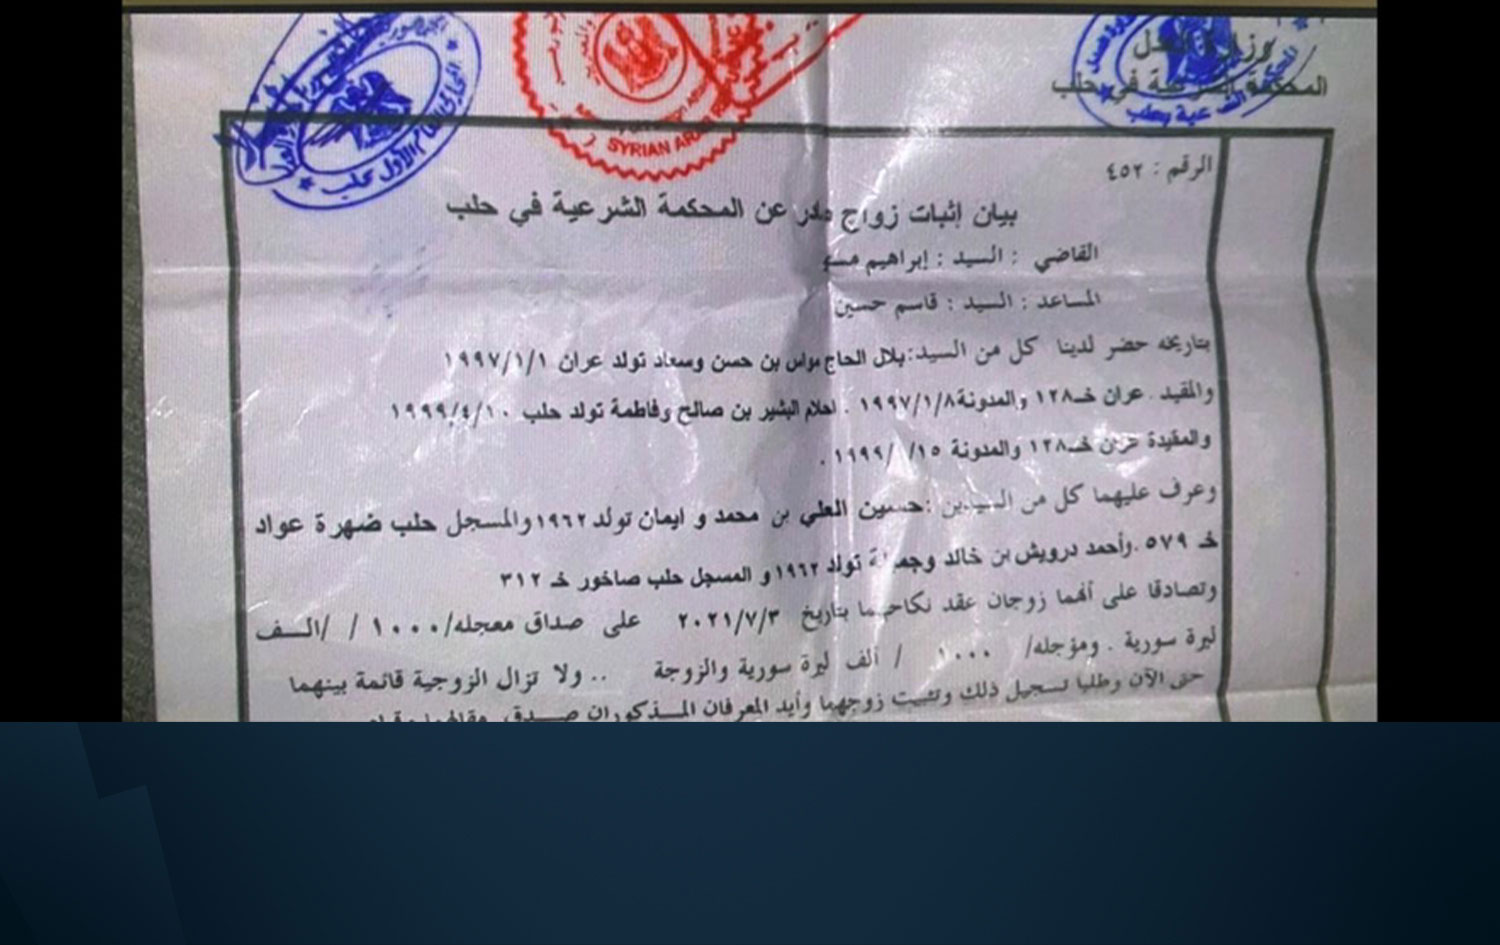 وزارة العدل
المحكمة الشرعية في حلب
SYRIAN ARAB
المحامي العام الأول بحلب
الشرعية بحلب
الرقم : ٤٥٢
بيان إثبات زواج صادر عن المحكمة الشرعية في حلب
القاضي : السيد : إبراهيم مسو
المساعد : السيد : قاسم حسين
بتاريخه حضر لدينا كل من السيد: بلال الحاج مواس بن حسن وسعاد تولد عران ١٩٩٧/١/١
والمقيد . عران خـ١٢٨ والمدونة ١٩٩٧/١/٨ . احلام البشير بن صالح وفاطمة تولد حلب ١٩٩٩/٤/١٠
والمقيدة عران خـ١٢٨ والمدونة ١٥/ /١٩٩٩ .
وعرف عليهما كل من السيدين : حسين العلي بن محمد و ايمان تولد ١٩٦٢ والمسجل حلب ضهرة عواد
خـ ٥٧٩ .وأحمد درويش بن خالد تولد ١٩٦٢ و المسجل حلب صاخور خـ ٣١٢
وتصادقا على أنهما زوجان عقد نكاحهما بتاريخ ٢٠٢١/٧/٣ على صداق معجله/١٠٠٠ / /الــف
ليرة سورية . ومؤجله/ ١٠٠٠ / ألف ليرة سورية والزوجة .. ولا تزال الزوجية قائمة بينهما
حتى الآن وطلبا تسجيل ذلك وتثبيت زوجهما وأيد المعرفان المــذكوران صــدق